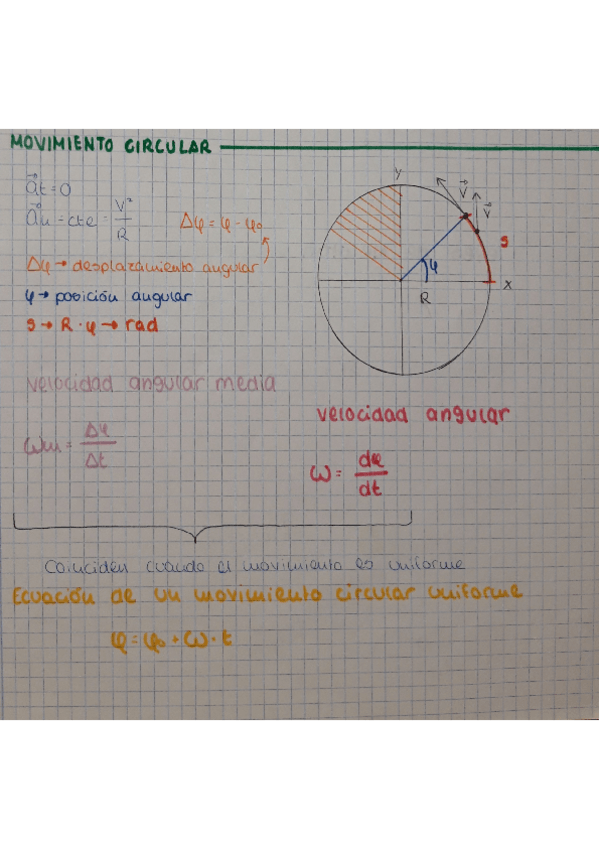 MOVIMIENTO CIRCULAR
a⃗t = 0
a⃗n = cte = V²/R
Δφ = φ - φ₀
Δφ → desplazamiento angular
φ → posición angular
s → R · φ → rad
y
v⃗
v⃗
s
φ
x
R
velocidad angular media
ωm = Δφ/Δt
velocidad angular
ω = dφ/dt
Coinciden cuando el movimiento es uniforme
Ecuación de un movimiento circular uniforme
φ = φ₀ + ω · t